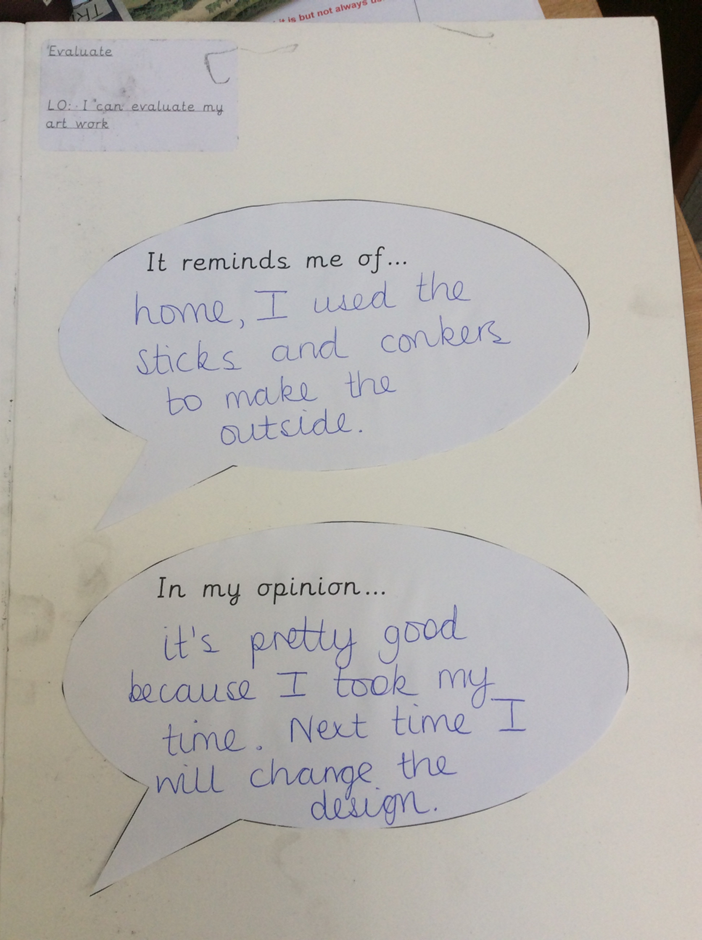 TR
it is but not always us
Evaluate
LO: I can evaluate my
art work
It reminds me of...
home, I used the
sticks and conkers
to make the
outside.
In my opinion...
it's pretty good
because I took my
time. Next time I
will change the
design.